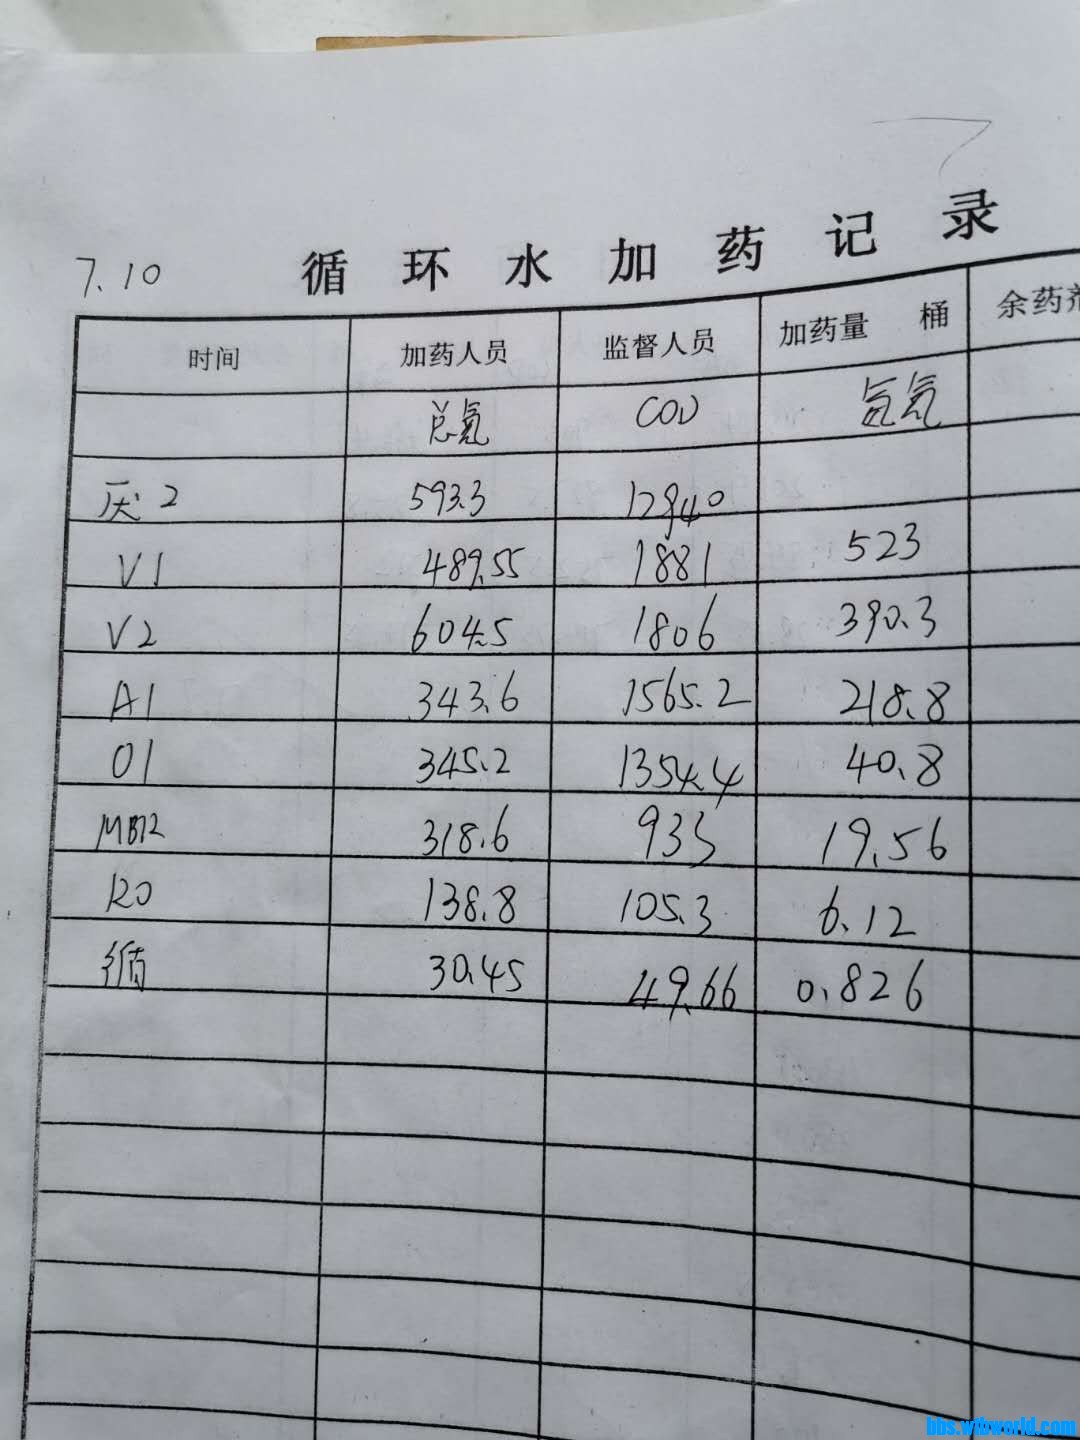 7.10 循环水加药记录
时间 加药人员 监督人员 加药量 桶 余药剂
总氮 COD 氨氮
厌2 593.3 12940
V1 489.55 1881 523
V2 604.5 1806 390.3
A1 343.6 1565.2 218.8
O1 345.2 1354.4 40.8
MBR 318.6 933 19.56
RO 138.8 105.3 6.12
循 30.45 49.66 0.826
bbs.wibworld.com